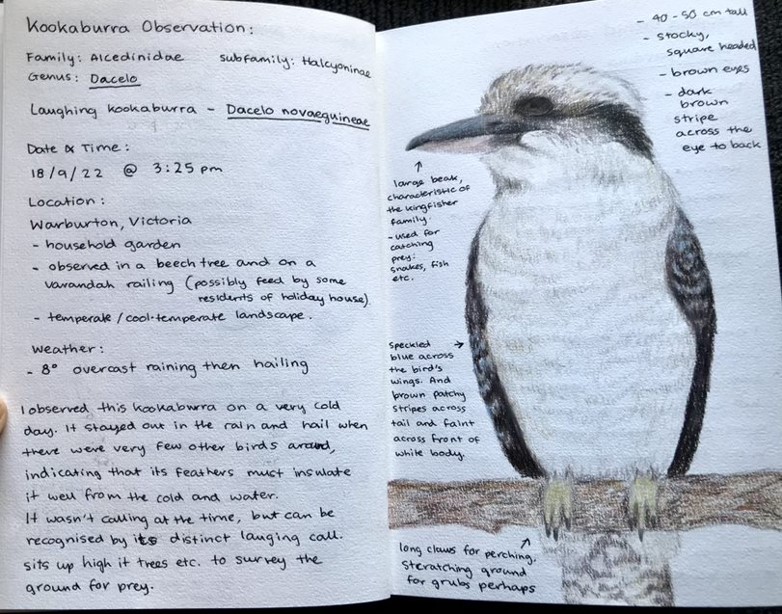 Kookaburra Observation:
Family: Alcedinidae subfamily: Halcyoninae
Genus: Dacelo
Laughing kookaburra - Dacelo novaeguineae
Date & Time:
18/9/22 @ 3:25 pm
Location:
Warburton, Victoria
- household garden
- observed in a beech tree and on a
varandah railing (possibly feed by some
residents of holiday house)
- temperate/cool-temperate landscape.
Weather:
- 8° overcast raining then hailing
I observed this kookaburra on a very cold
day. It stayed out in the rain and hail when
there were very few other birds around,
indicating that its feathers must insulate
it well from the cold and water.
It wasn't calling at the time, but can be
recognised by its distinct lauging call.
sits up high it trees etc. to survey the
ground for prey.
- 40-50 cm tall
- stocky,
square headed
- brown eyes
- dark
brown
stripe
across the
eye to back
large beak,
characteristic of
the kingfisher
family.
- used for
catching
prey:
snakes, fish
etc.
speckled
blue across
the bird's
wings. And
brown patchy
stripes across
tail and faint
across front of
white body.
long claws for perching,
stcratching ground
for grubs perhaps